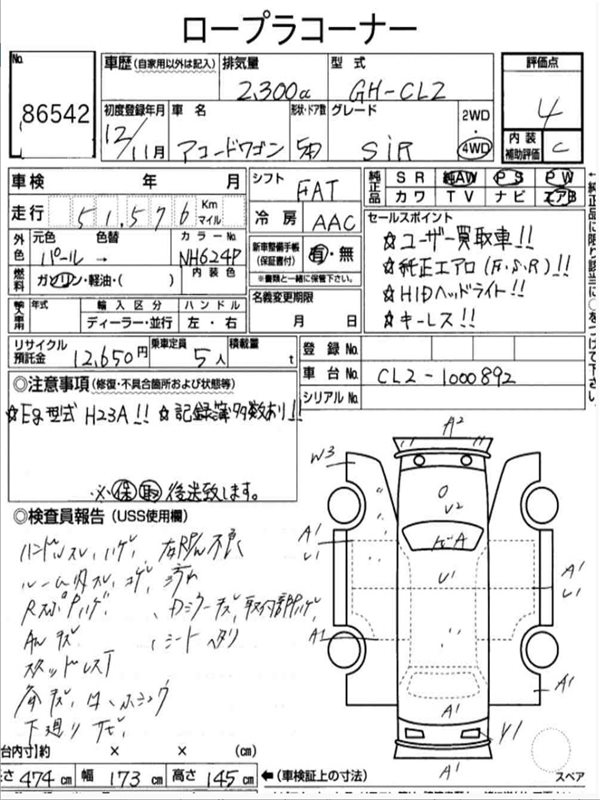 ロープラコーナー
No. 86542
車歴 (自家用以外は記入) 排気量 2,300cc 型式 GH-CL2
評価点 4
初度登録年月 12/11月 車名 アコードワゴン 形状・ドア数 5 グレード SiR 2WD・4WD
内装補助評価 C
車検 年 月
シフト FAT
純正品 SR 純AW PS PW
カワ TV ナビ エアB
走行 51,576 Km マイル
冷房 AAC
セールスポイント
☆ユーザー買取車!!
☆純正エアロ(F・S・R)!!
☆HIDヘッドライト!!
☆キーレス!!
外色 元色 パール → 色替 カラーNo. NH624P
新車整備手帳(保証書付) 有・無
※書類と一緒に保管下さい。
燃料 ガソリン・軽油・( ) 内装色
名義変更期限 月 日
輸入車用 年式 輸入区分 ディーラー・並行 ハンドル 左・右
リサイクル預託金 12,650円 乗車定員 5人 積載量 t
登録No.
車台No. CL2-1000892
シリアルNo.
◎注意事項(修復・不具合箇所および状態等)
☆Eg型式 H23A!! ☆記録簿多数あり!!
※保取後送致します。
◎検査員報告 (USS使用欄)
ハンドルスレ、ハゲ
ルーム内スレ、コゲ、汚れ
AWキズ 、シートヘタリ
スタッドレスT
下廻りサビ
A2
W3
U2
A1
U1
A1
U1
A1
U1
A1
A1
A1
Y1
A1
スペア
台内寸 約 × × (cm)
長さ 474cm 幅 173cm 高さ 145cm ←(車検証上の寸法)
←純正品に限り該当に○をつけて下さい。